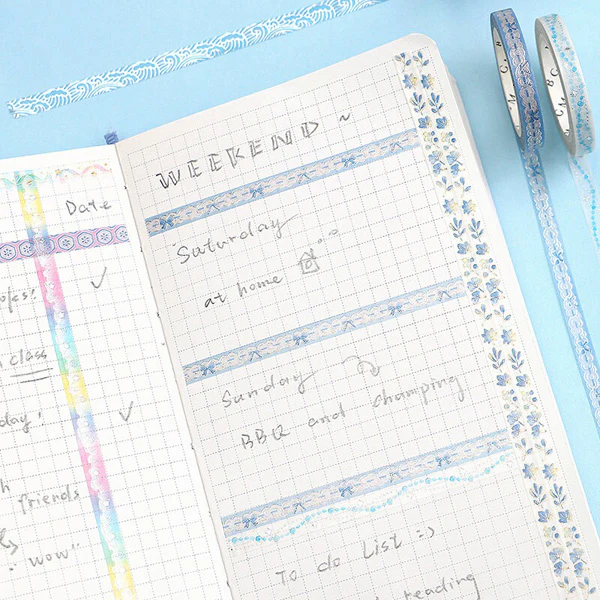 Date
class
friends
wow"
WEEKEND ~
Saturday
at home
Sunday
BBQ and champing
To do List :)
reading